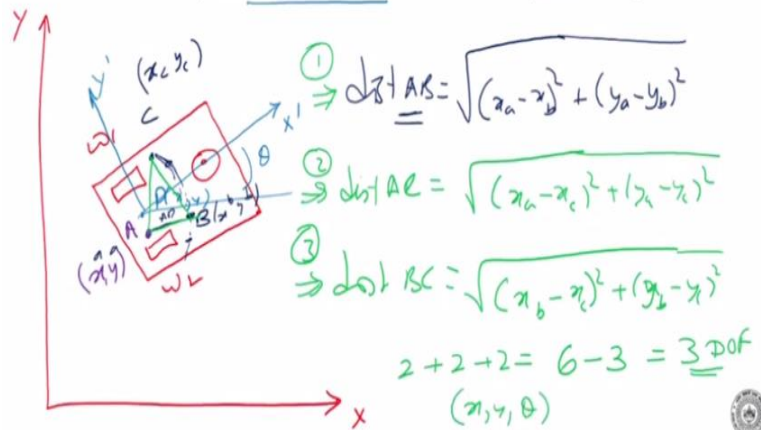 Y
Y'
(x_c y_c)
C
X'
W1
θ
A
B(x_b y_b)
(x_a, y_a)
W2
X
① ⇒ dist AB = √((x_a - x_b)² + (y_a - y_b)²)
② ⇒ dist AC = √((x_a - x_c)² + (y_a - y_c)²)
③ ⇒ dist BC = √((x_b - x_c)² + (y_b - y_c)²)
2 + 2 + 2 = 6 - 3 = 3 DOF
(x, y, θ)